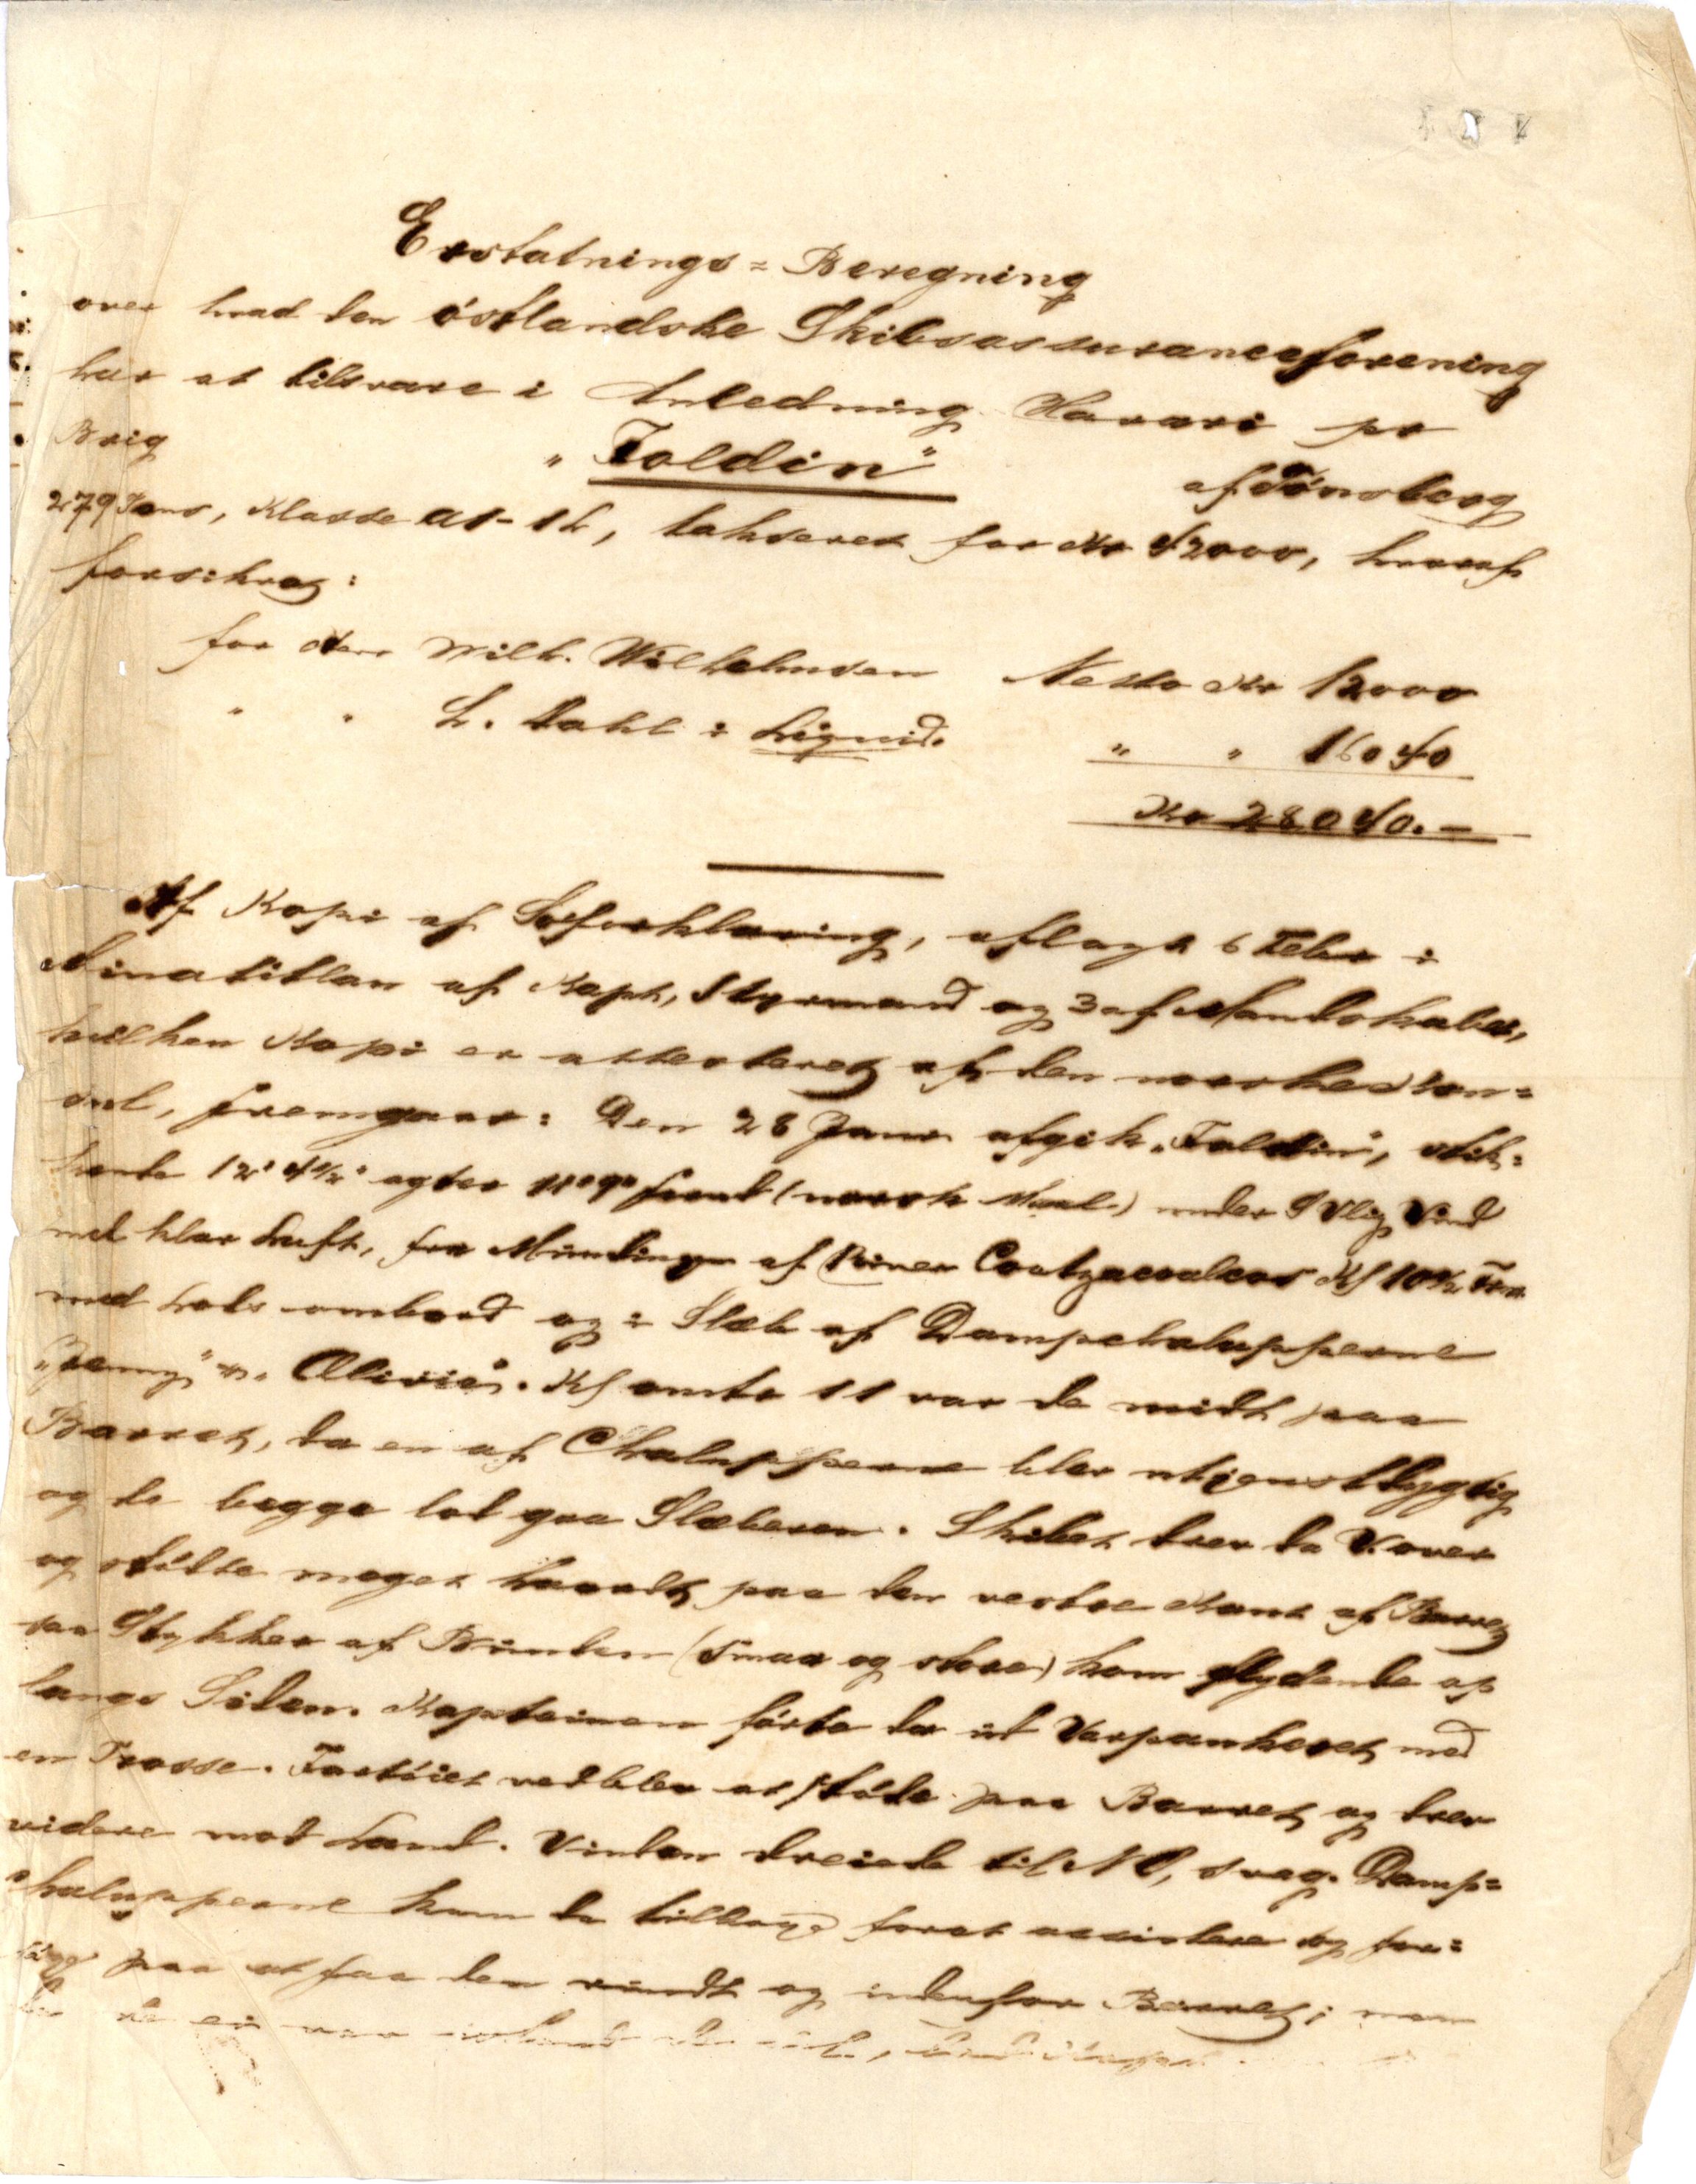 Erstatnings=Beregning
over hvad den östlandske Skibsassuranceforening
har at tilsvare i Anledning Havari pr
Brig "Foldin" af Tönsberg
279 Tons, Klasse A1-1 b, takseret for Kr 42000, hvoraf
forsikret:
for Herr Wilh. Wilhelmsen Netto Kr 12000
" " L. Dahl i Liqvid. " " 16040
Kr 28040.-
Af Kopi af Söforklaring, aflagt 6 Febr i
Minatitlan af Kapt, Styrmand og 3 af Mandskabet,
hvilken Kopi er attesteret af den norske Kon=
sul, fremgaar: Den 28 Janr afgik "Foldin", stik=
kende 12' 4½" agter 11' 9" forud (norsk Maal) under SVlig Vind
med klar Luft, fra Mundingen af River Coatzacoalcos Kl 10½ Fm
med Lods ombord og i Slæb af Dampchalupperne
"Jenny" & "Olivia". Kl omtr 11 var de midt paa
Barren, da en af Chalupperne blev utjenstdygtig
og de begge lod gaa Slæberen. Skibet drev da V. over
og stödte meget haardt paa den vestre Kant af Barren
saa Stykker af Bunden (smaa og store) kom flydende op
langs Siden. Kapteinen förte da ud Varpankeret med
en Trosse. Fartöiet vedblev at stöde paa Barren og drev
videre mod Land. Vinden dreiede til NO, svag. Damp=
chalupperne kom da tilbage foret assistere og for=
paa at faa den rundt og indenfor Barren; men
da de ei var istand